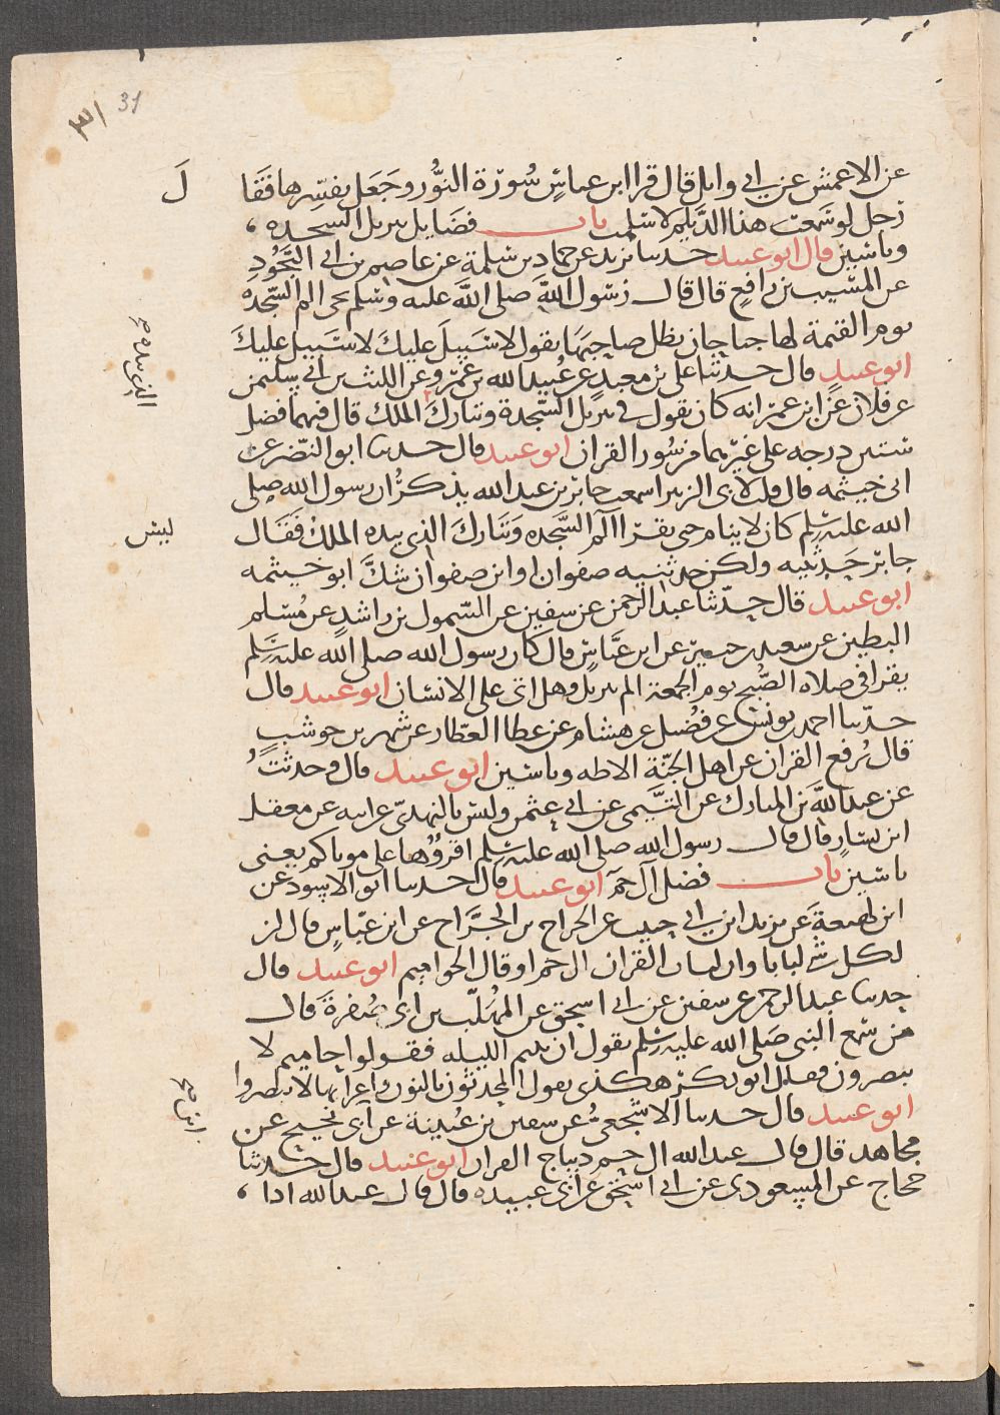 31
٣١
عن الاعمش عن ابي وايل قال قرا ابن عباس سُورة النوُّر وجَعَل يفسّرها فقَا
لَ
رجل لو سَمعت هذا الدَّيلم لاسلمت باب فضَايل تنزيل السجده
وياسين قال ابو عبيد حدثنا يزيد عن حماد بن سلمة عن عاصم بن ابي النَّجُود
عن المسَيب بن رافع قال قال رسُول الله صلى الله عليه وسلم تجى الم السّجده
يوم القيمة لها جناحان تظل صاحبهَا تقول لا سَبيلَ عليك لا سَبيل عليكَ
ابو عبيد قال حدثنا على بن معبد عن عُبيد الله بن عَمْرو عن الليث بن ابي سليمن
عن فلان عن ابن عمر انه كان يقول في تنزيل السّجدة وتبارك الملك قال فيهما فضل
ستين درجه على غيرهما من سُور القران ابو عبيد قال حدثنا ابو النضر عن
ابى خيثمه قال قلت لابى الزبير اسمعت جابر بن عبد الله يذكرُ ان رسول الله صلى
الله عليه وسلم كان لا ينام حتى يقرا الٓم السَّجده وَتبَاركَ الذى بيده الملكْ فَقَال
ليس
جابر حَدثنيه ولكن حدثنيه صفوان او ابن صفوان شكَّ ابو خيثمه
ابو عبيد قال حدّثنا عبد الرحمن عن سفين عن السّمول بن راشدٍ عن مُسْلم
البطين عن سعيد بن جبير عن ابن عبَّاسٍ قال كان رسول الله صلى الله عليه وسلم
يقرا فى صلاه الصُّبح يوم الجمعة الم تنزيل وهل اتى على الانسان ابو عبيد قال
حدّثنا احمد بن يونس عن فُضيل عن هشام عن عطا العطار عن شهر بن حوشبٍ
قال يُرفع القران عن اهل الجنّة الا طه وياسين ابو عبيد قال وحدثتُ
عن عبد الله بن المبارك عن التَّيمى عن ابي عثمن وليس بالنهدىّ عن ابيه عن معقل
ابن يسَارٍ قال قال رسول الله صلى الله عليه وسلم اقرؤُها على موتاكم يعنى
ياسين باب فضل آل حٓم ابو عبيد قال حدثنا ابو الاسود عن
ابن لهيعةَ عن يزيد ابن ابي حبيب عن الجراح بن الجرَّاح عن ابن عبّاسٍ قال ان
لكل شى لبابا وان لباب القران ال حم او قال الحواميم ابو عبيد قال
حدثنا عبد الرحمن عن سفين عن ابي اسحق عن المهُلّب بن ابى صُفرةَ قال
من سَمع النبى صَلى الله عليه وسلم يقول ان بيتم الليله فقولوا حاميم لا
ينصرون فقال ابو بكر هكذى يقول المحدثون بالنون واعرابها لا ينصروا
ابو عبيد قال حدثنا الاشجعىُّ عن سفين بن عُيينة عن ابى نجيح عن
مجاهد قال قال عبد الله ال حم ديباج القران ابو عبيد قال حدثنا
حجاج عن المسعودى عن ابي اسحق عن ابى عبيده قال قال عبد الله اذا